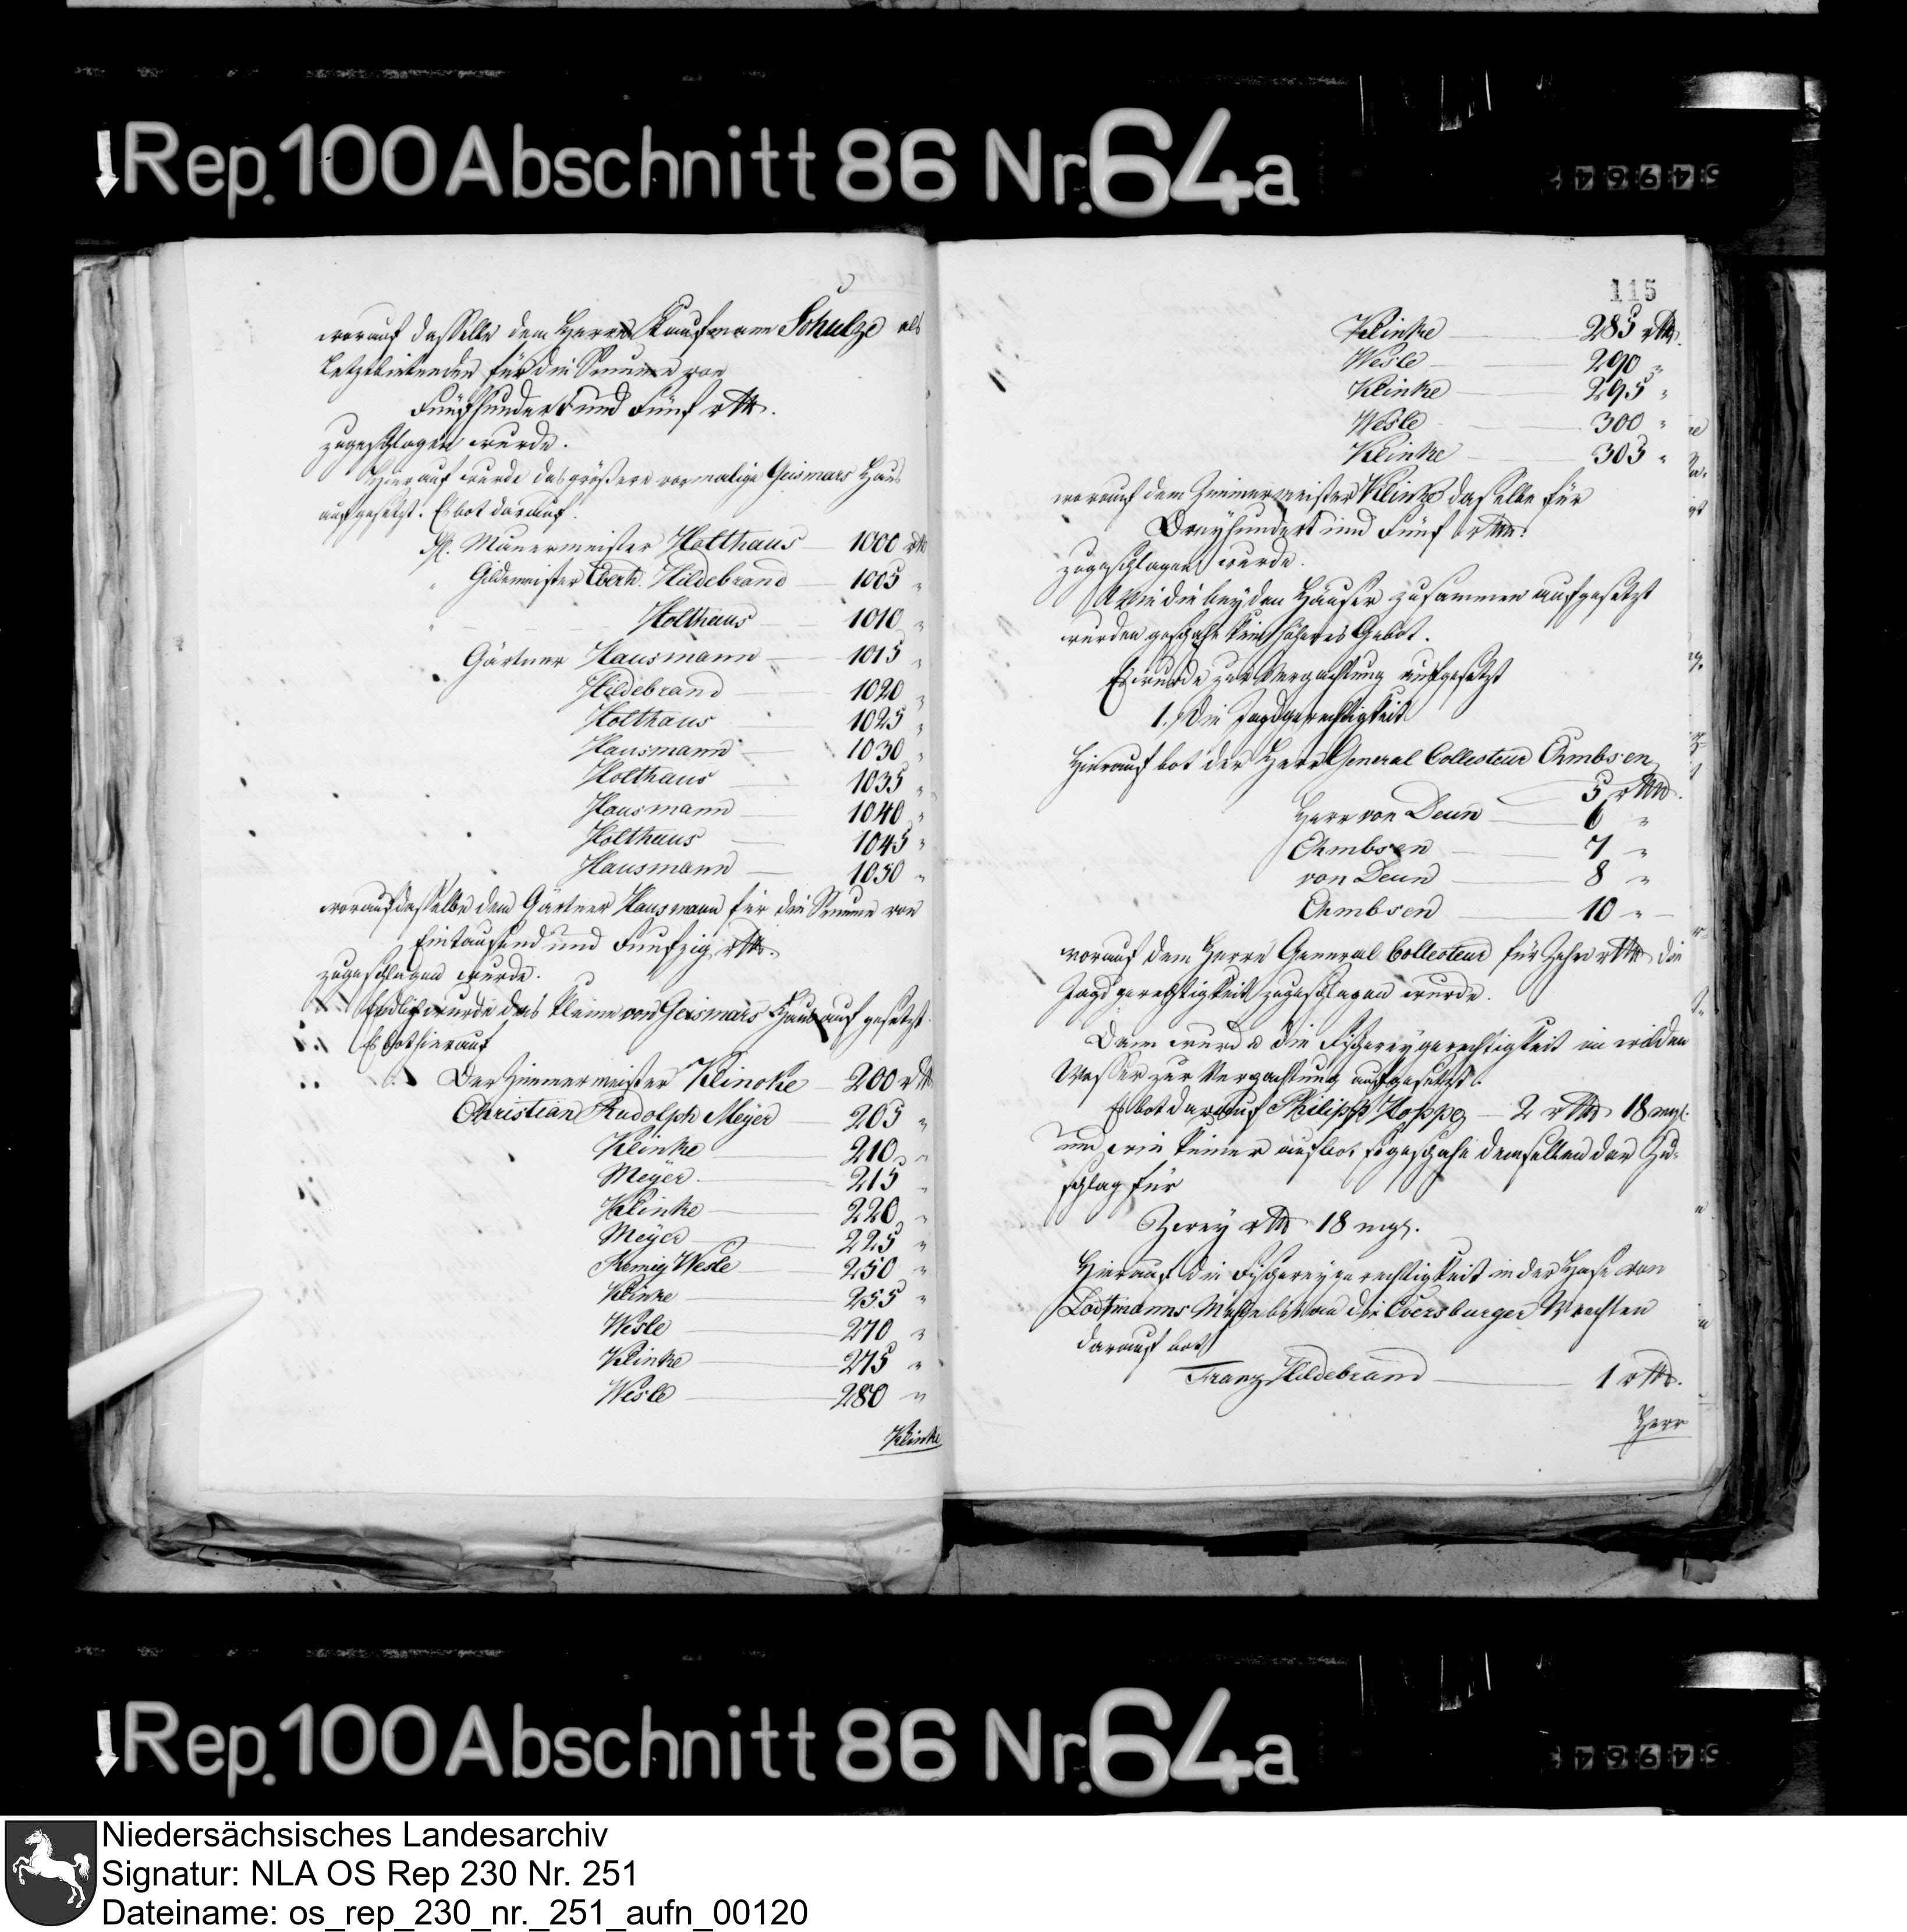 Rep. 100 Abschnitt 86 Nr. 64a
worauf dasselbe dem Herrn Kaufmann Schulze als
Letztbietenden für die Summe von
Fünfhundert und Fünf rthl.
zugeschlagen wurde.
Hierauf wurde das größere vormalige Geismars Haus
aufgesetzt. Es bot darauf
H. Mauermeister Holthaus 1000 rthl
" Gildemeister Eberh. Hildebrand 1005 "
" Holthaus 1010 "
Gärtner Hausmann 1015 "
Hildebrand 1020 "
Holthaus 1025 "
Hausmann 1030 "
Holthaus 1035 "
Hausmann 1040 "
Holthaus 1045 "
Hausmann 1050 "
worauf dasselbe dem Gärtner Hausmann für die Summe von
Eintausend und Funfzig rthl.
zugeschlagen wurde.
Endlich wurde das kleine von Geismars Haus aufgesetzt.
Es bot hierauf
Der Zimmermeister Klincke 200 rthl
Christian Rudolph Meyer 205 "
Klinke 210 "
Meyer 215 "
Klinke 220 "
Meyer 225 "
Wesle 250 "
Klinke 255 "
Wesle 270 "
Klinke 275 "
Wesle 280 "
Klinke
115
Klinke 285 rthl.
Wesle 290 "
Klinke 295 "
Wesle 300 "
Klinke 305 "
worauf dem Zimmermeister Klinke dasselbe für
Dreyhundert und Fünf rthlr.
zugeschlagen wurde.
Wie die beyden Häuser zusammen aufgesetzt
wurden geschahe kein höheres Gebot.
Es wurde zur Verpachtung aufgesetzt
1. Die Jagdgerechtigkeit
Hierauf bot der Herr General Collecteur Ohmbsen
5 rthlr.
Herr von Deun 6 "
Ohmbsen 7 "
von Deun 8 "
Ohmbsen 10 "
worauf dem Herrn General Collecteur für Zehn rthlr die
Jagdgerechtigkeit zugeschlagen wurde.
Dann wurde die Fischereygerechtigkeit im wilden
Wasser zur Verpachtung aufgesetzt.
Es bot darauf Philipp Hoppe 2 rthlr 18 mgl.
und wie keiner aufbot so geschahe demselben der Zu-
schlag für
Zwey rthlr 18 mgl.
Hierauf die Fischereygerechtigkeit in der Hase von
Lodtmanns bis an die Eversburger
darauf bot
Franz Hildebrand 1 rthlr.
Herr
Rep. 100 Abschnitt 86 Nr. 64a
Niedersächsisches Landesarchiv
Signatur: NLA OS Rep 230 Nr. 251
Dateiname: os_rep_230_nr._251_aufn_00120